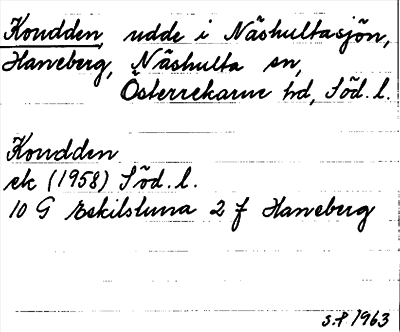 Koudden, udde i Näshultasjön,
Haneberg, Näshulta sn,
Österrekarne hd, Söd. l.
Koudden
ek (1958) Söd. l.
10 G Eskilstuna 2 f Haneberg
S.P 1963